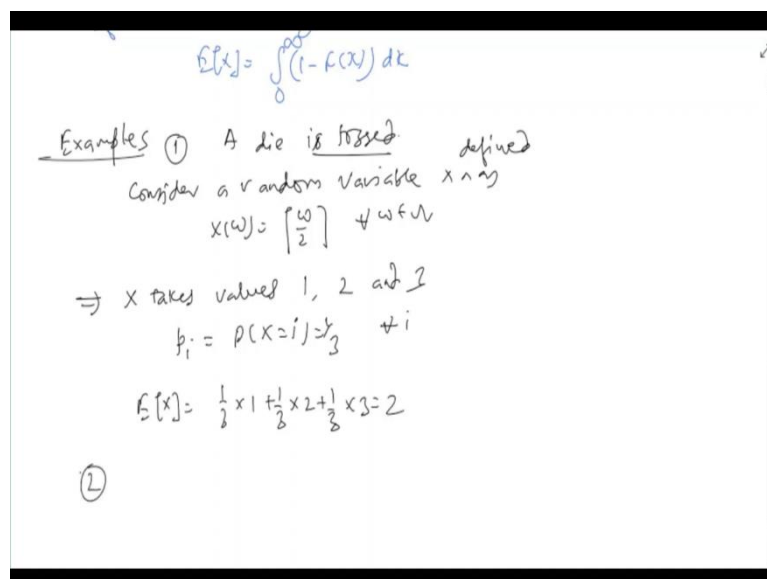 E[X] = ∫₀^∞ (1 - F(x)) dx
Examples ① A die is tossed.
Consider a random variable X as defined
X(ω) = ⌈ω/2⌉ ∀ ω ∈ Ω
⇒ X takes values 1, 2 and 3
p_i = P(X=i) = 1/3 ∀ i
E[X] = 1/3 × 1 + 1/3 × 2 + 1/3 × 3 = 2
②